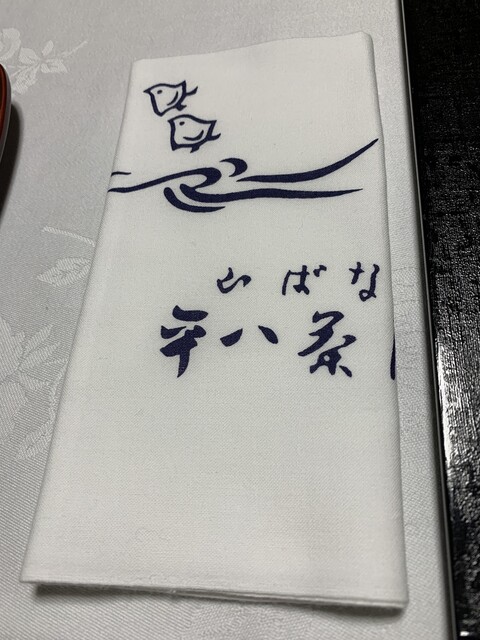 山ばな
平八茶